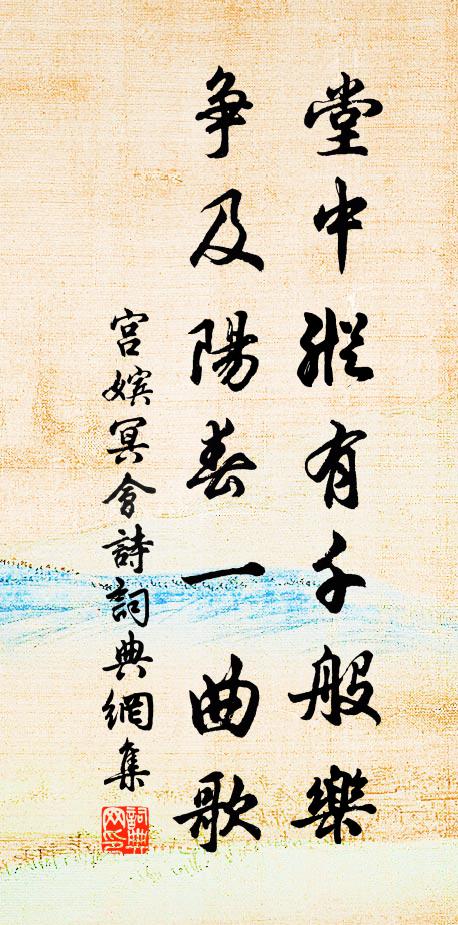 堂中縱有千般樂
争及陽春一曲歌
宮嬪冥會詩詞典網集
詞典網印